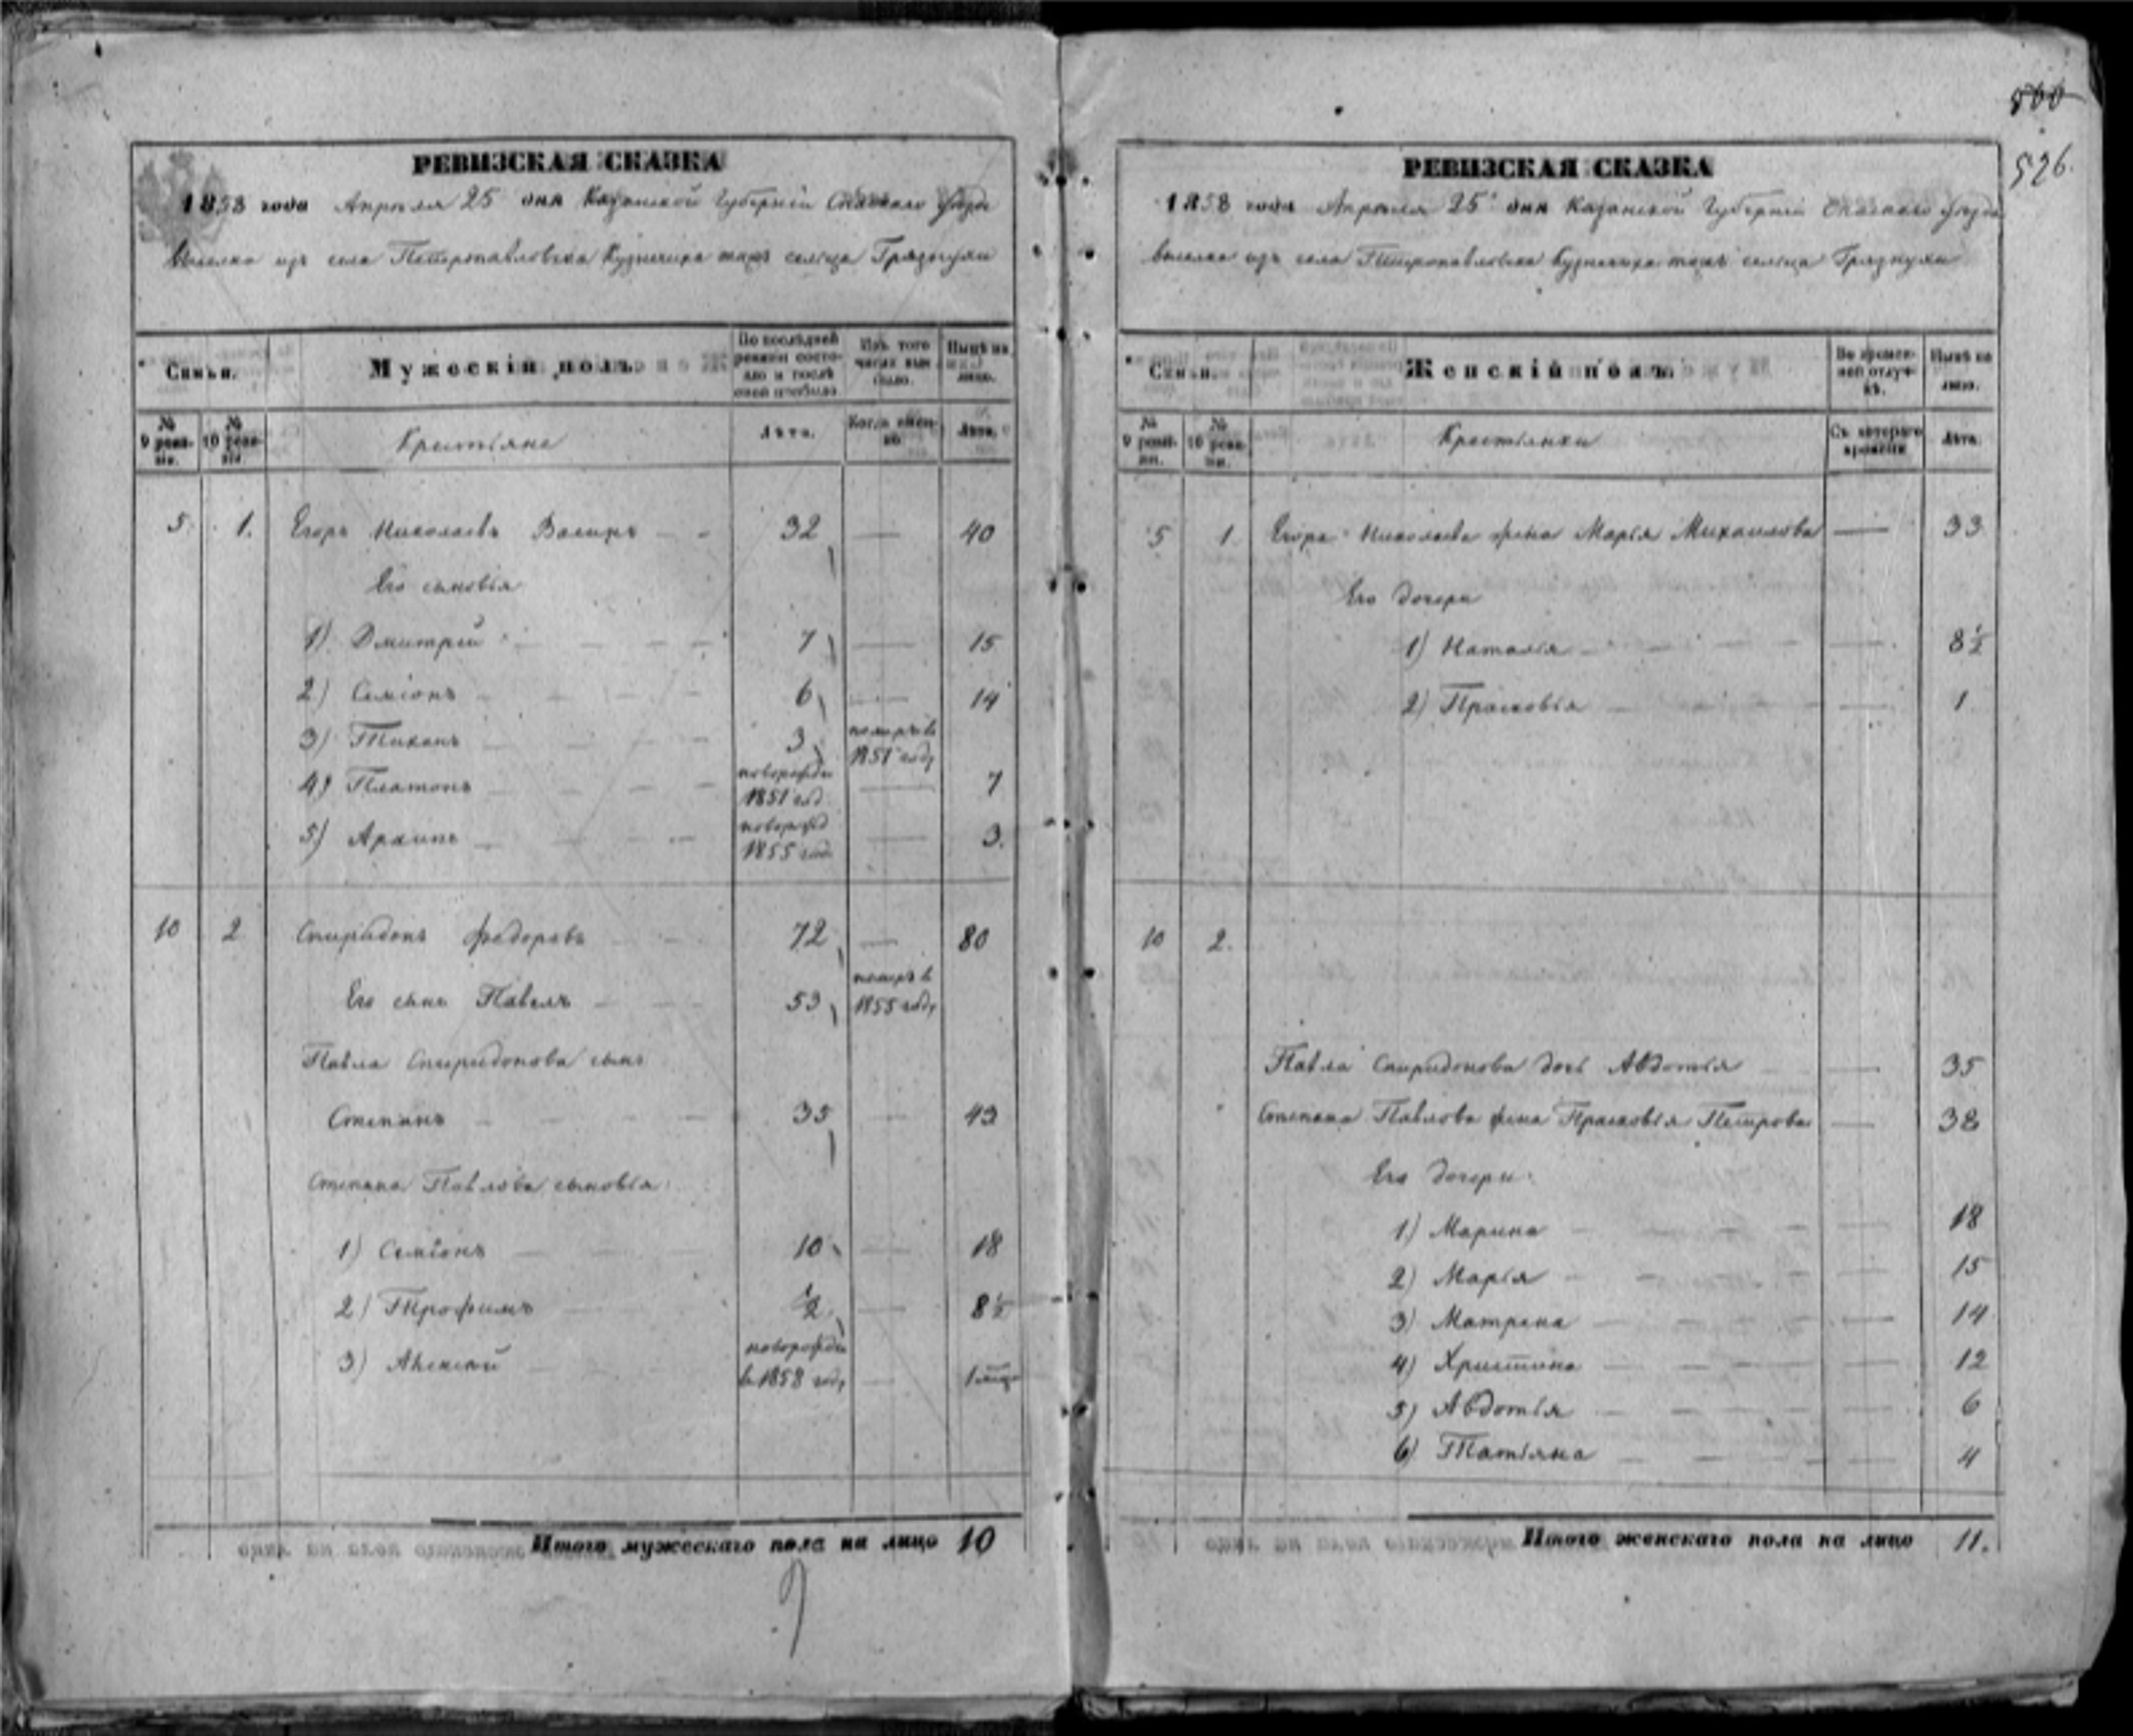 РЕВИЗСКАЯ СКАЗКА
1858 года Апреля 25 дня Казанской Губернии Спаскаго уезда
Выселка изъ села Петропавловска Кузнечиха тожъ сельца Грязнухи
Семьи.
Мужескій полъ.
По послѣдней ревизіи состояло и послѣ оной прибыло.
Изъ того числа выбыло.
Нынѣ на лицо.
№ 9 ревизіи.
№ 10 ревизіи.
Крестьяне
Лѣта.
Когда именно
Лѣта.
5 1. Егоръ Николаевъ 32 — 40
Его сыновья
1) Дмитрій — 7 — 15
2) Семіонъ — 6 — 14
3) Тихонъ — 3 померъ въ 1851 году
4) Платонъ — новорожден 1851 год — 7
5) Архипъ — новорожд 1855 год — 3.
10 2 Спиридонъ Федоровъ — 72 — 80
Его сынъ Павелъ — 53 померъ въ 1855 году
Павла Спиридонова сынъ
Степанъ — 35 — 43
Степана Павлова сыновья
1) Семіонъ — 10 — 18
2) Трофимъ — ½ — 8½
3) Алексѣй — новорожден в 1858 году — 1 мец
Итого мужескаго пола на лицо 10
500
526.
РЕВИЗСКАЯ СКАЗКА
1858 года Апреля 25 дня Казанской Губерніи Спаскаго уезда
выселка изъ села Петропавловска Кузнечиха тожъ сельца Грязнухи
Семьи.
Женскій полъ.
Во временной отлучкѣ.
Нынѣ на лицо.
№ 9 ревизіи.
№ 10 ревизіи.
Крестьянки
Съ котораго времени
Лѣта.
5 1 Егора Николаева жена Марья Михайлова — 33
Его дочери
1) Наталья — 8½
2) Прасковья — 1
10 2.
Павла Спиридонова дочь Авдотья — 35
Степана Павлова жена Прасковья Петрова — 38
Его дочери
1) Марина — 18
2) Марья — 15
3) Матрена — 14
4) Христина — 12
5) Авдотья — 6
6) Татьяна — 4
Итого женскаго пола на лицо 11.